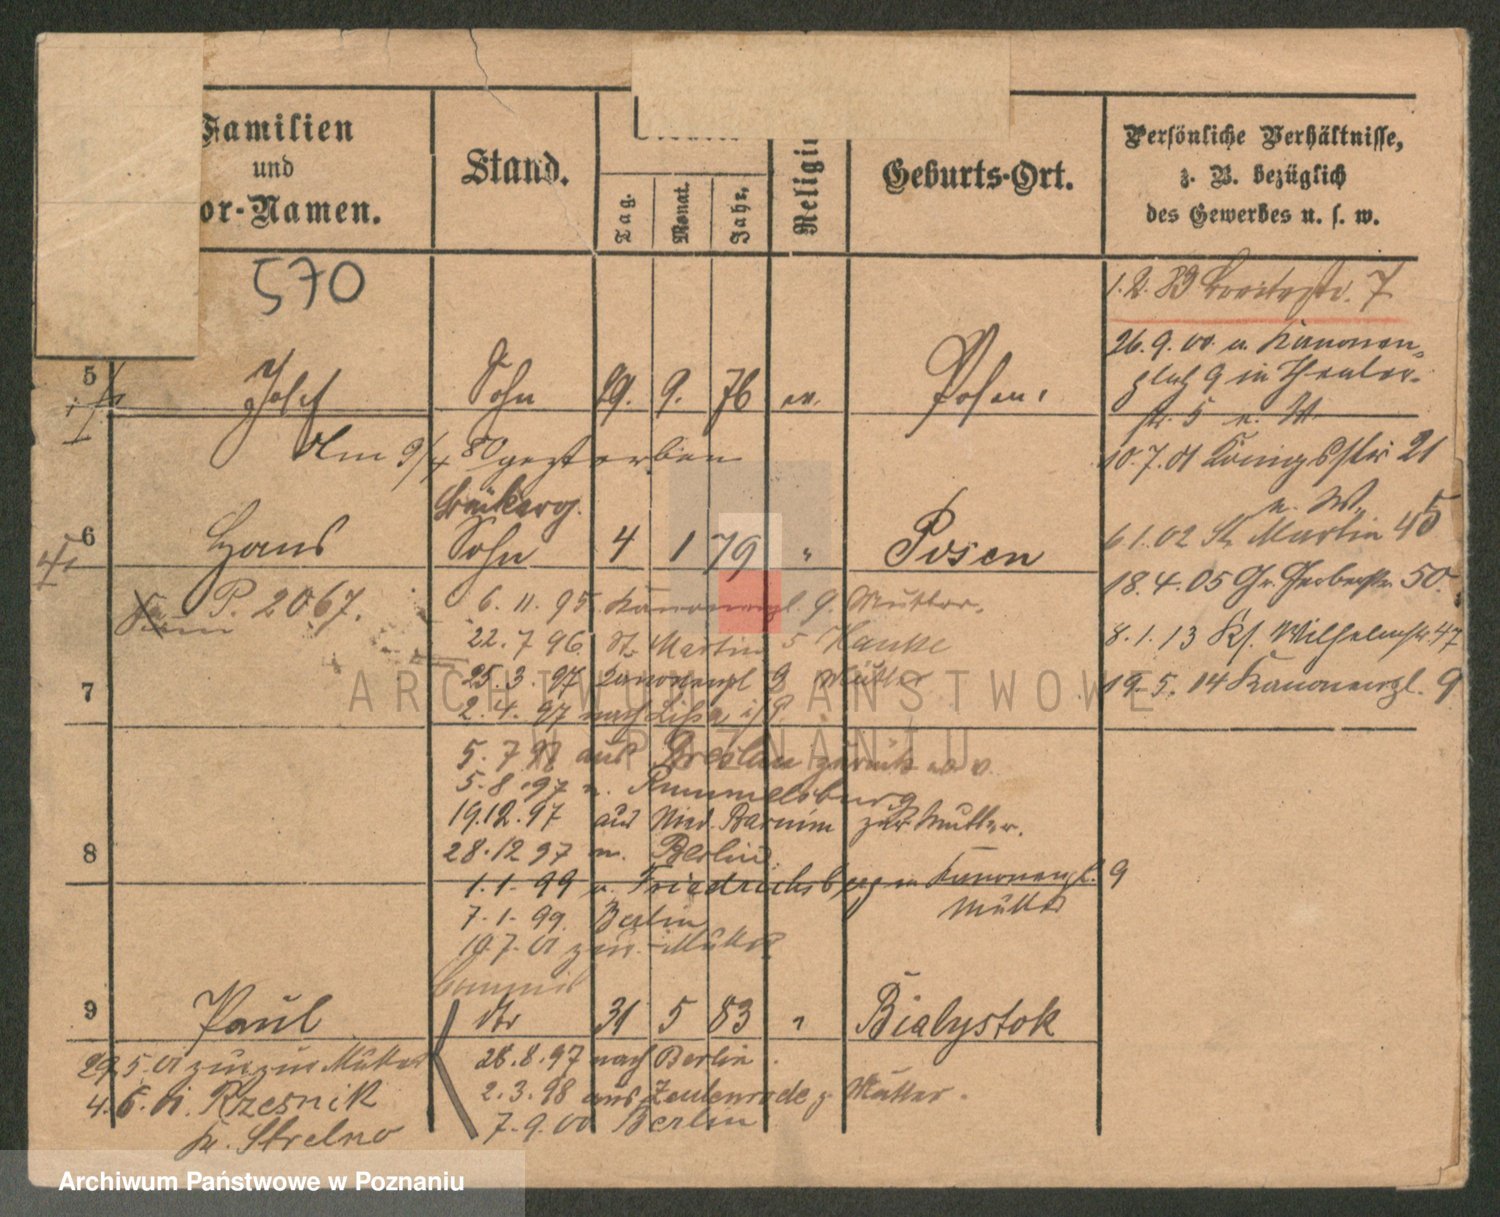 Familien
und
or-Namen.
Stand.
Tag.
Monat.
Jahr.
Religi
Geburts-Ort.
Persönliche Verhältnisse,
z. B. bezüglich
des Gewerbes u. s. w.
570
1. 2. 89 7
26. 9. 00 u. Kanonen-
platz 9 in Theater-
str. 5 n. W
5 Josef Sohn 29. 9. 76 ev. Posen
Am 9/4 80 gestorben
10. 7. 01 Königsstr 21
n. W.
6 Hans Sohn 4 1 79 " Posen
6 1. 02 St. Martin 45
P. 2067.
18. 4. 05 Gr. Gerberstr. 50.
6. 11. 95. Kanonenpl. 9. Mutter.
8. 1. 13 Ks. Wilhelmstr. 47
22. 7 96. St. Martin 5 Hanke
25. 3. 97 Kanonenpl 9 Mutter
19. 5. 14 Kanonenpl. 9
7
2. 4. 97 nach Lissa i/P.
5. 7 97 aus Breslau zurück
5. 8. 97 n. Rummelsburg
19.12. 97 aus Nied. Barnim zur Mutter.
8
28. 12 97 n. Berlin.
1. 1. 99 v. Friedrichsberg Kanonenpl. 9
Mutter
7. 1. 99. Berlin
10. 7. 01 zur Mutter
9 Paul 31 5 83 " Bialystok
29. 5. 01 zur Mutter
28. 8. 97 nach Berlin.
4. 6. 01. Rzesnik
2. 3. 98 aus Zeulenroda z Mutter.
Kr. Strelno
7. 9. 00 Berlin
ARCHIWUM PAŃSTWOWE
W POZNANIU
Archiwum Państwowe w Poznaniu